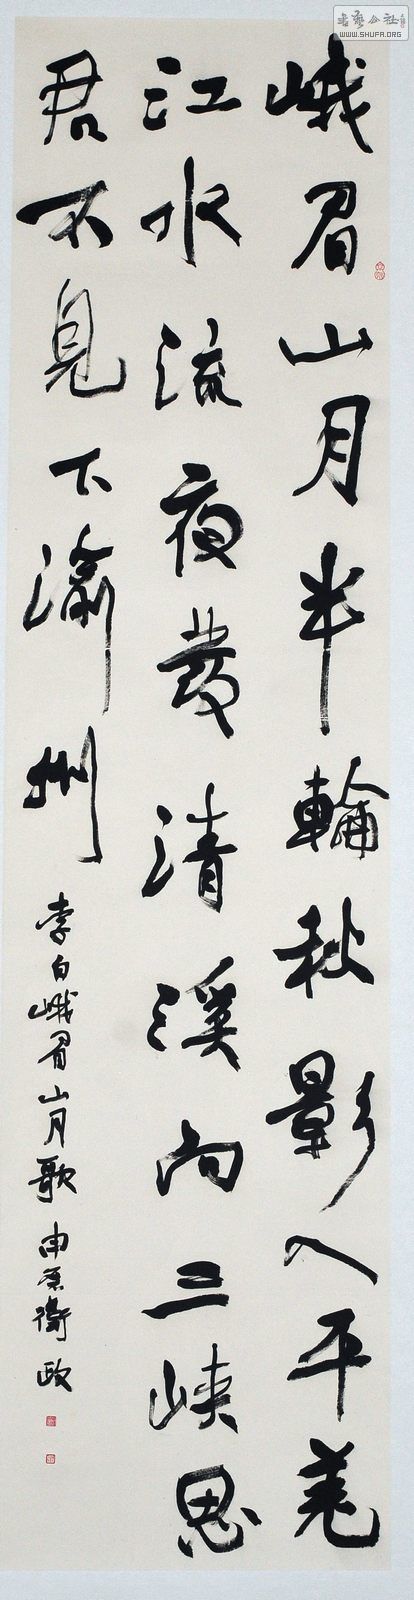 峨眉山月半輪秋影入平羌
江水流夜發清溪向三峡思
君不見下渝州
李白峨眉山月歌 中原衛政
書藝公社
WWW.SHUFA.ORG